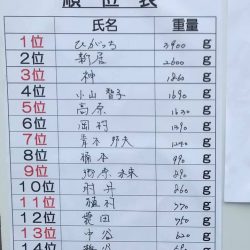 順位表
氏名 重量
1位 ひがっち 3900 g
2位 新居 2600 g
3位 榊 1860 g
4位 小山 智子 1690 g
5位 高原 1630 g
6位 岡村 1390 g
7位 青木 邦夫 1240 g
8位 橋本 990 g
9位 郷原 未来 890 g
10位 村井 860 g
11位 植村 770 g
12位 豊田 750 g
13位 中谷 620 g
14位 g